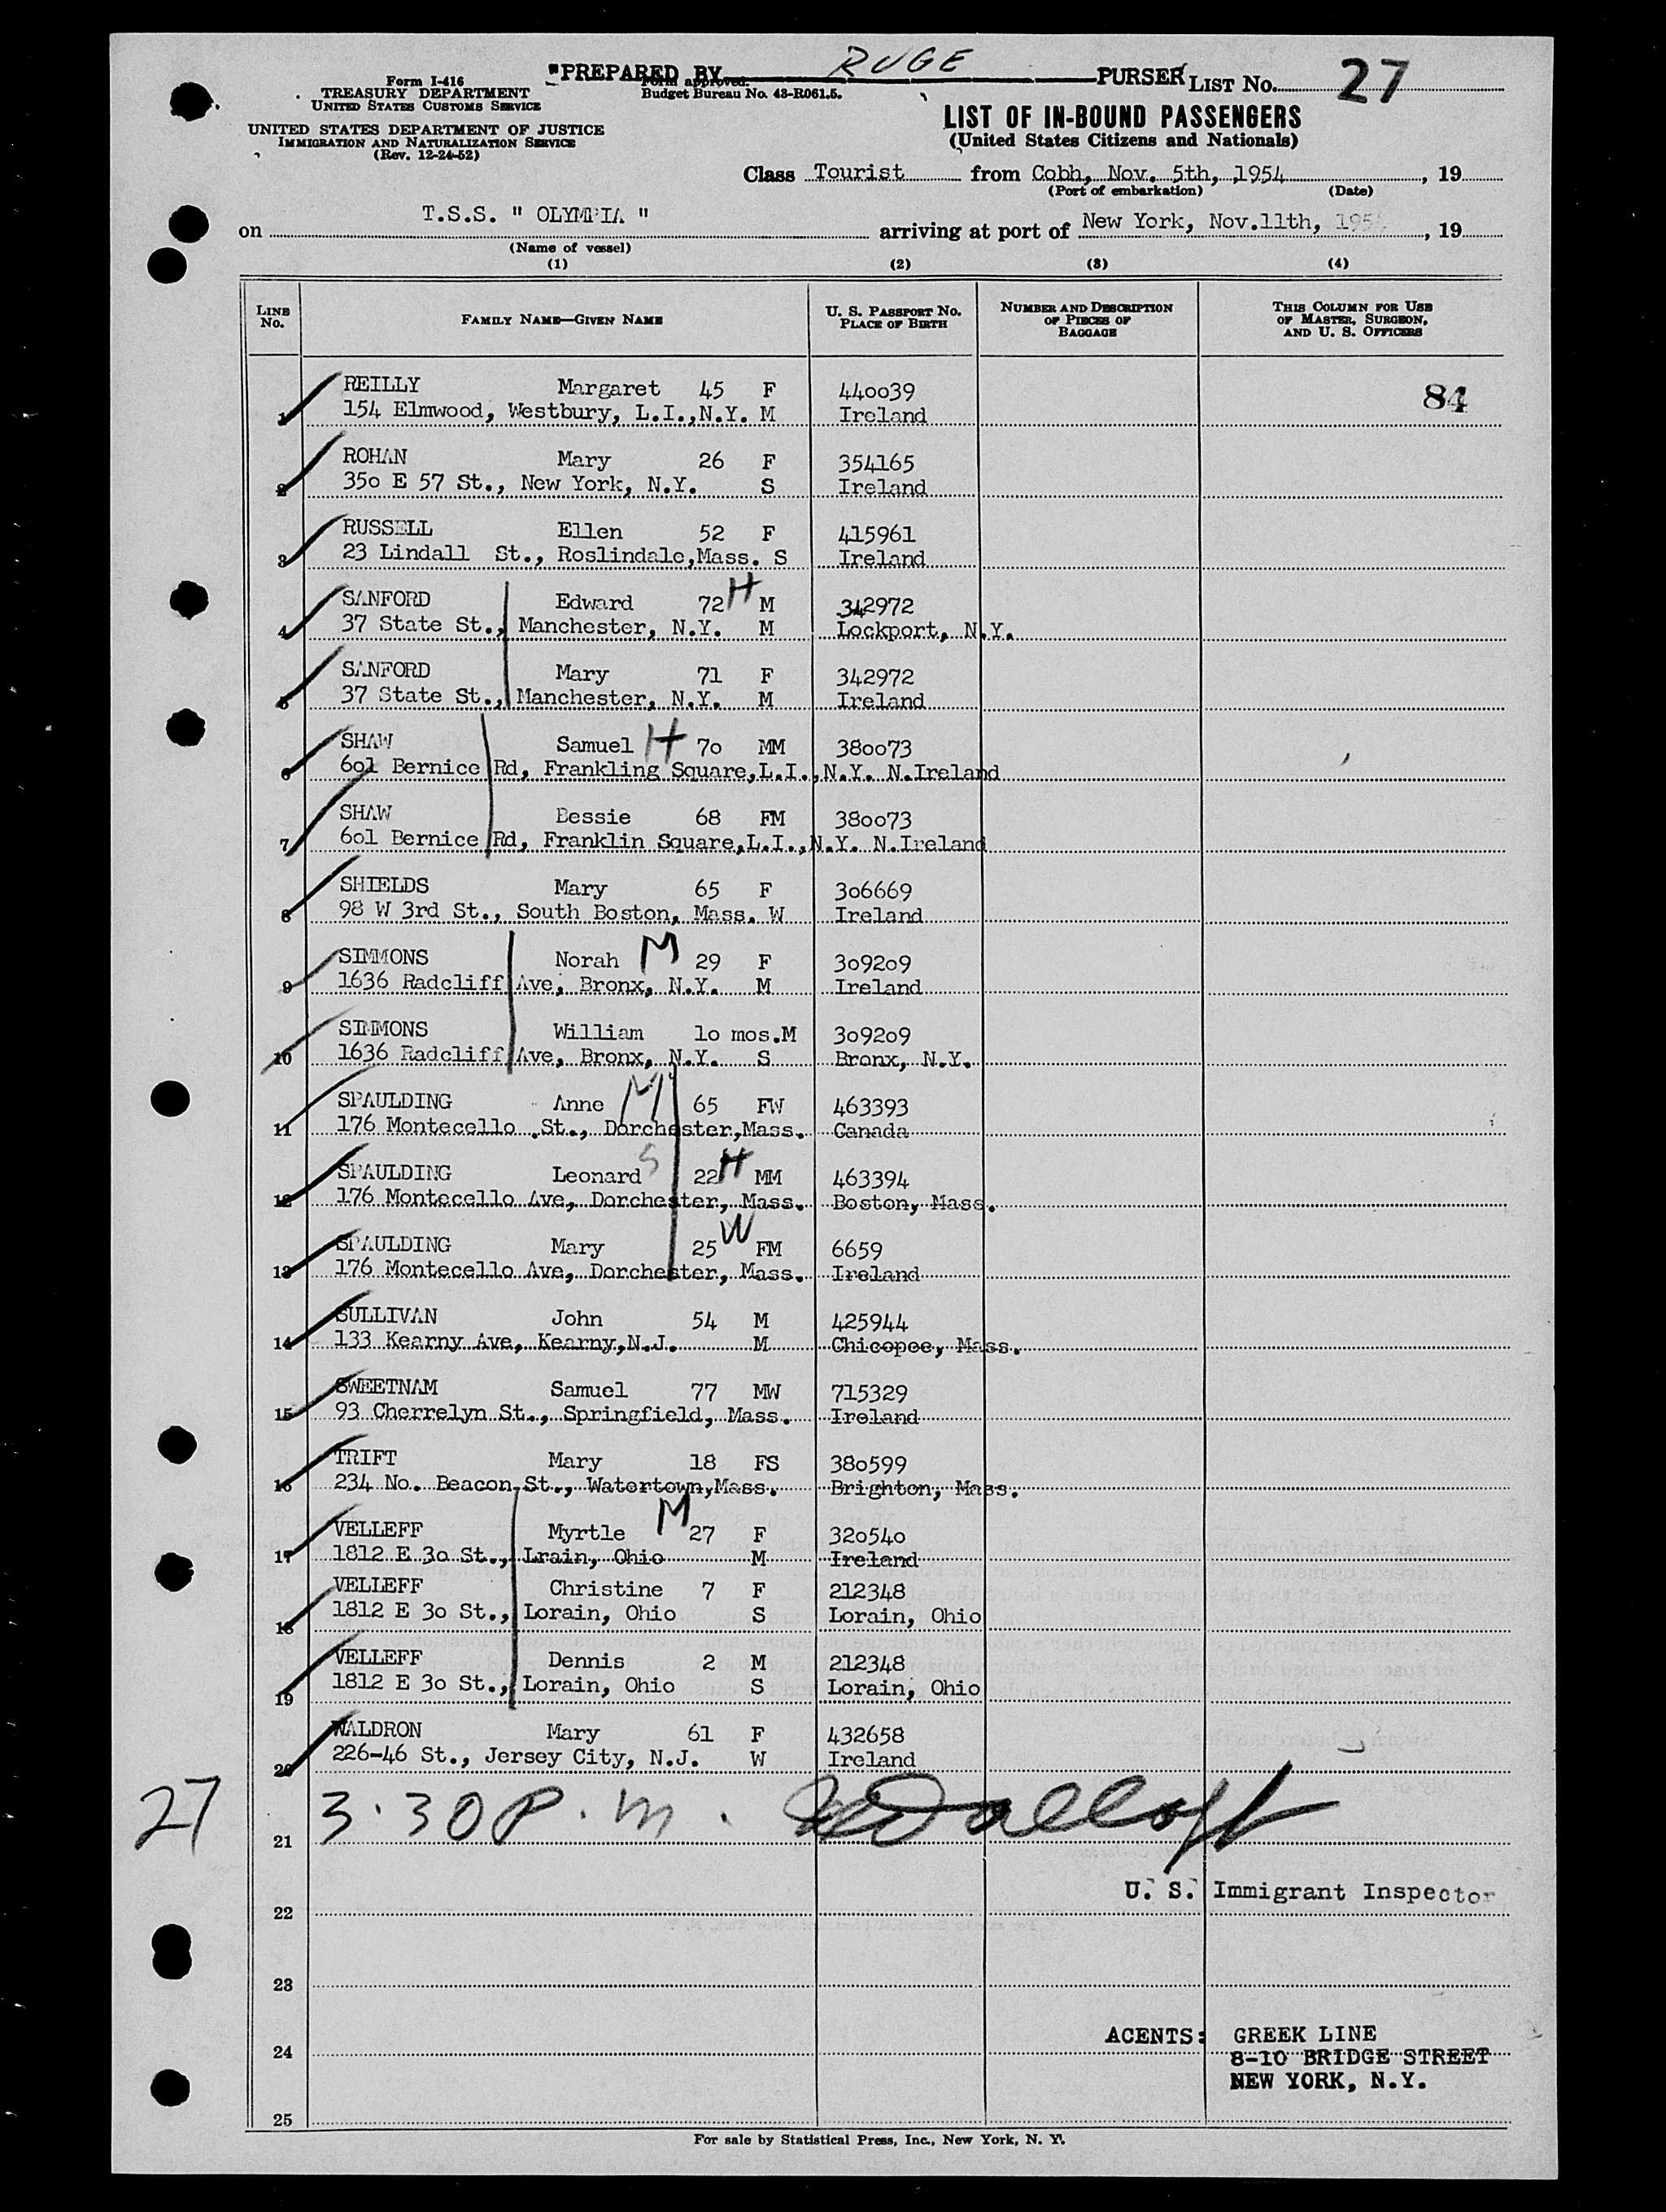 "PREPARED BY RUGE PURSER LIST No. 27
Form I-416
TREASURY DEPARTMENT
UNITED STATES CUSTOMS SERVICE
Form approved.
Budget Bureau No. 43-R061.5.
UNITED STATES DEPARTMENT OF JUSTICE
IMMIGRATION AND NATURALIZATION SERVICE
(Rev. 12-24-52)
LIST OF IN-BOUND PASSENGERS
(United States Citizens and Nationals)
Class Tourist from Cobh, Nov. 5th, 1954, 19
(Port of embarkation) (Date)
on T.S.S. " OLYMPIA " arriving at port of New York, Nov.11th, 195 , 19
(Name of vessel)
(1) (2) (3) (4)
LINE No. FAMILY NAME—GIVEN NAME U. S. PASSPORT NO. PLACE OF BIRTH NUMBER AND DESCRIPTION OF PIECES OF BAGGAGE THIS COLUMN FOR USE OF MASTER, SURGEON, AND U. S. OFFICERS
REILLY Margaret 45 F 440039 84
1 154 Elmwood, Westbury, L.I.,N.Y. M Ireland
ROHAN Mary 26 F 354165
2 350 E 57 St., New York, N.Y. S Ireland
RUSSELL Ellen 52 F 415961
3 23 Lindall St., Roslindale,Mass. S Ireland
SANFORD Edward 72 H M 342972
4 37 State St., Manchester, N.Y. M Lockport, N.Y.
SANFORD Mary 71 F 342972
5 37 State St., Manchester, N.Y. M Ireland
SHAW Samuel H 70 MM 380073
6 601 Bernice Rd, Frankling Square,L.I.,N.Y. N.Ireland
SHAW Bessie 68 FM 380073
7 601 Bernice Rd, Franklin Square,L.I.,N.Y. N.Ireland
SHIELDS Mary 65 F 306669
8 98 W 3rd St., South Boston, Mass. W Ireland
SIMMONS Norah M 29 F 309209
9 1636 Radcliff Ave, Bronx, N.Y. M Ireland
SIMMONS William 10 mos.M 309209
10 1636 Radcliff Ave, Bronx, N.Y. S Bronx, N.Y.
SPAULDING Anne M 65 FW 463393
11 176 Montecello .St., Dorchester,Mass. Canada
SPAULDING Leonard S 22 H MM 463394
12 176 Montecello Ave, Dorchester, Mass. Boston, Mass.
SPAULDING Mary 25 W FM 6659
13 176 Montecello Ave, Dorchester, Mass. Ireland
SULLIVAN John 54 M 425944
14 133 Kearny Ave, Kearny,N.J. M Chicopee, Mass.
SWEETNAM Samuel 77 MW 715329
15 93 Cherrelyn St., Springfield, Mass. Ireland
TRIFT Mary 18 FS 380599
16 234 No. Beacon St., Watertown,Mass. Brighton, Mass.
VELLEFF Myrtle M 27 F 320540
17 1812 E 30 St., Lrain, Ohio M Ireland
VELLEFF Christine 7 F 212348
18 1812 E 30 St., Lorain, Ohio S Lorain, Ohio
VELLEFF Dennis 2 M 212348
19 1812 E 30 St., Lorain, Ohio S Lorain, Ohio
WALDRON Mary 61 F 432658
20 226-46 St., Jersey City, N.J. W Ireland
27
21 3.30 P.m.
U. S. Immigrant Inspector
22
23
ACENTS: GREEK LINE
24 8-10 BRIDGE STREET
NEW YORK, N.Y.
25
For sale by Statistical Press, Inc., New York, N. Y.